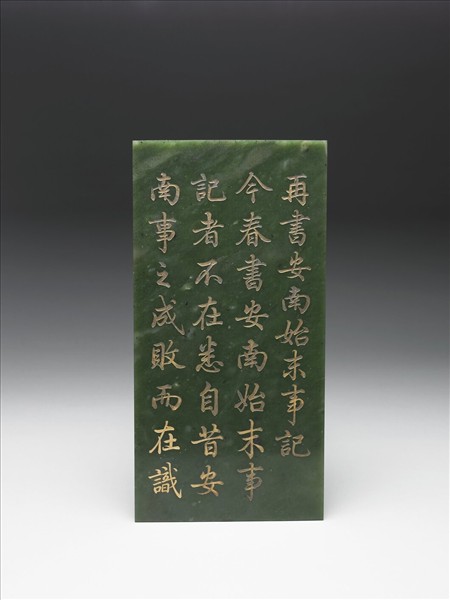 再書安南始末事記
今春書安南始末事
記者不在悉自昔安
南事之成敗而在識